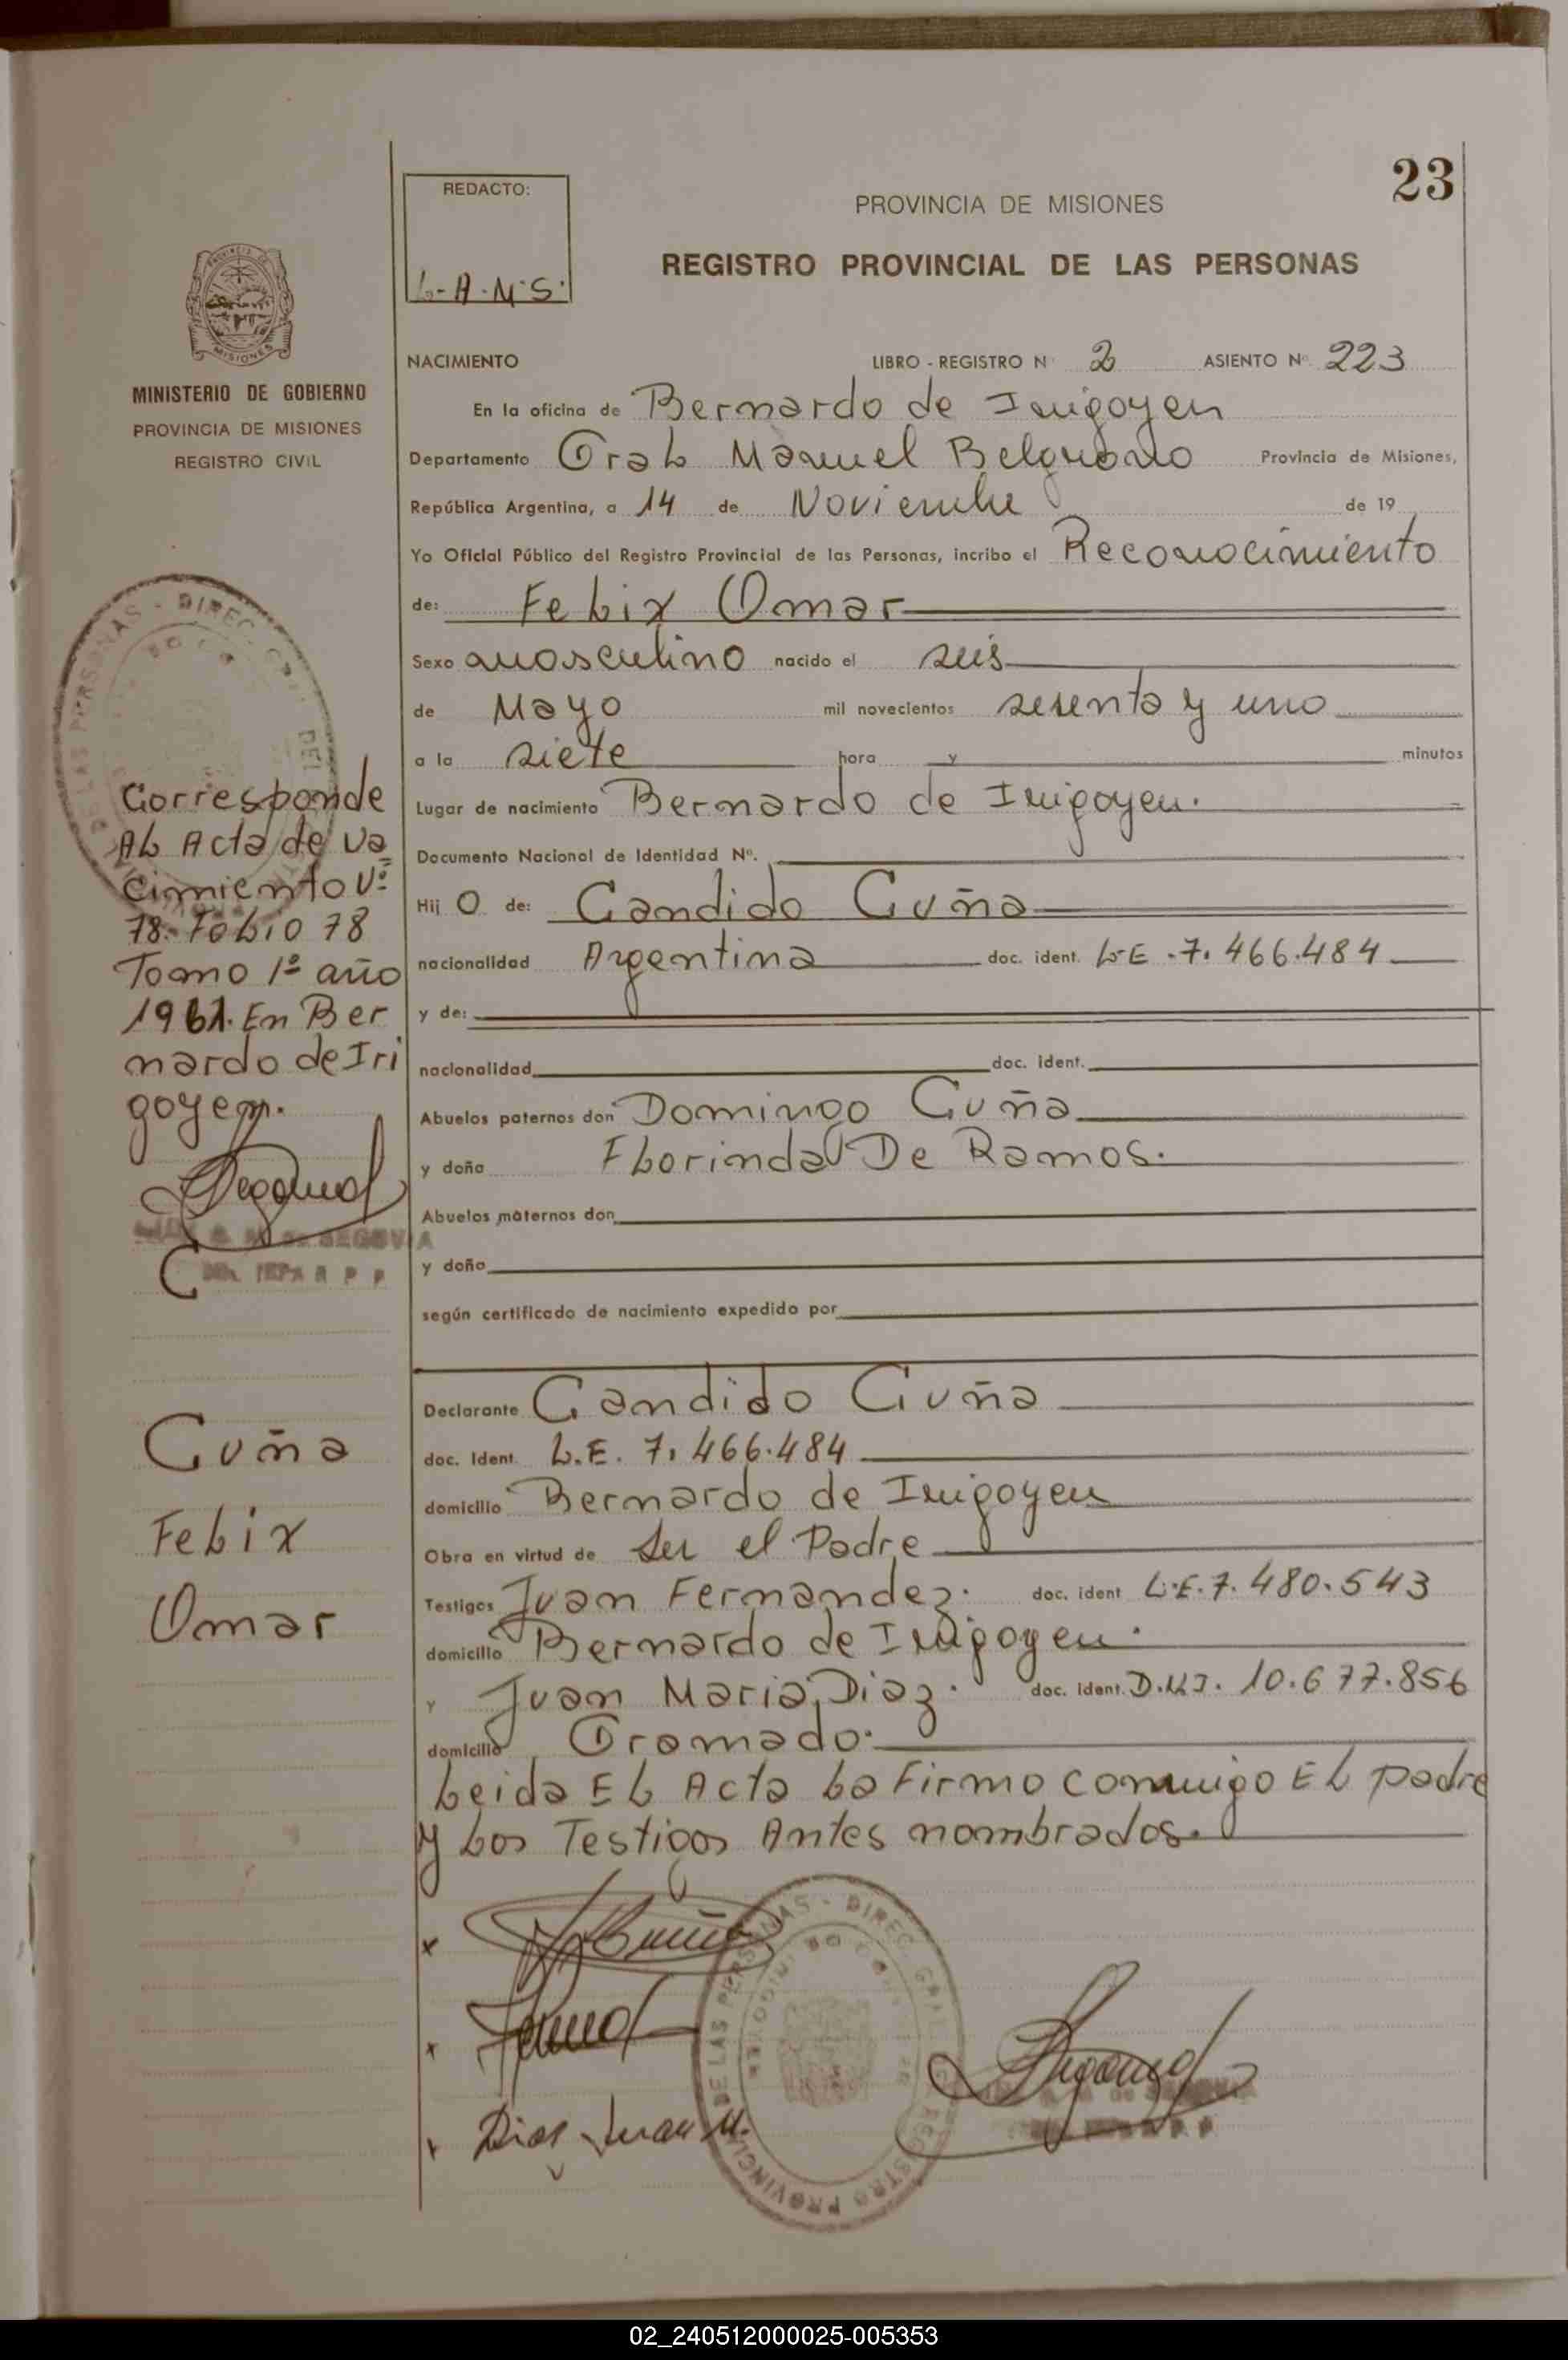 23
REDACTO:
L-A-M-S.
PROVINCIA DE MISIONES
REGISTRO PROVINCIAL DE LAS PERSONAS
MINISTERIO DE GOBIERNO
PROVINCIA DE MISIONES
REGISTRO CIVIL
NACIMIENTO LIBRO - REGISTRO N° 2 ASIENTO N° 223
En la oficina de Bernardo de Irigoyen
Departamento Gral Manuel Belgrano Provincia de Misiones,
República Argentina, a 14 de Noviembre de 19
Yo Oficial Público del Registro Provincial de las Personas, incribo el Reconocimiento
de: Felix Omar
Sexo masculino nacido el seis
de Mayo mil novecientos sesenta y uno
a la siete hora y minutos
Lugar de nacimiento Bernardo de Irigoyen.
Documento Nacional de Identidad N°.
Hij o de: Candido Cuña
nacionalidad Argentina doc. ident. L-E-7.466.484
y de:
nacionalidad doc. ident.
Abuelos paternos don Domingo Cuña
y doña Florinda De Ramos.
Abuelos maternos don
y doña
según certificado de nacimiento expedido por
Declarante Candido Cuña
doc. Ident. L.E. 7.466.484
domicilio Bernardo de Irigoyen
Obra en virtud de ser el Padre
Testigos Juan Fernandez. doc. ident L.E.7.480.543
domicilio Bernardo de Irigoyen.
y Juan Maria Diaz. doc. ident. D.N.I. 10.677.856
domicilio Gramado.
Leida El Acta la Firmo conmigo El padre
y los Testigos Antes nombrados.
Corresponde
Al Acta de Na
cimiento Nº
78-Folio 78
Tomo 1º año
1961. En Ber
nardo de Iri
goyen.
SEGOVIA
Cuña
Felix
Omar
Dias Juan M.
DE LAS PERSONAS - DIREC. GRAL. DEL REGISTRO PROVINCIAL
02_240512000025-005353